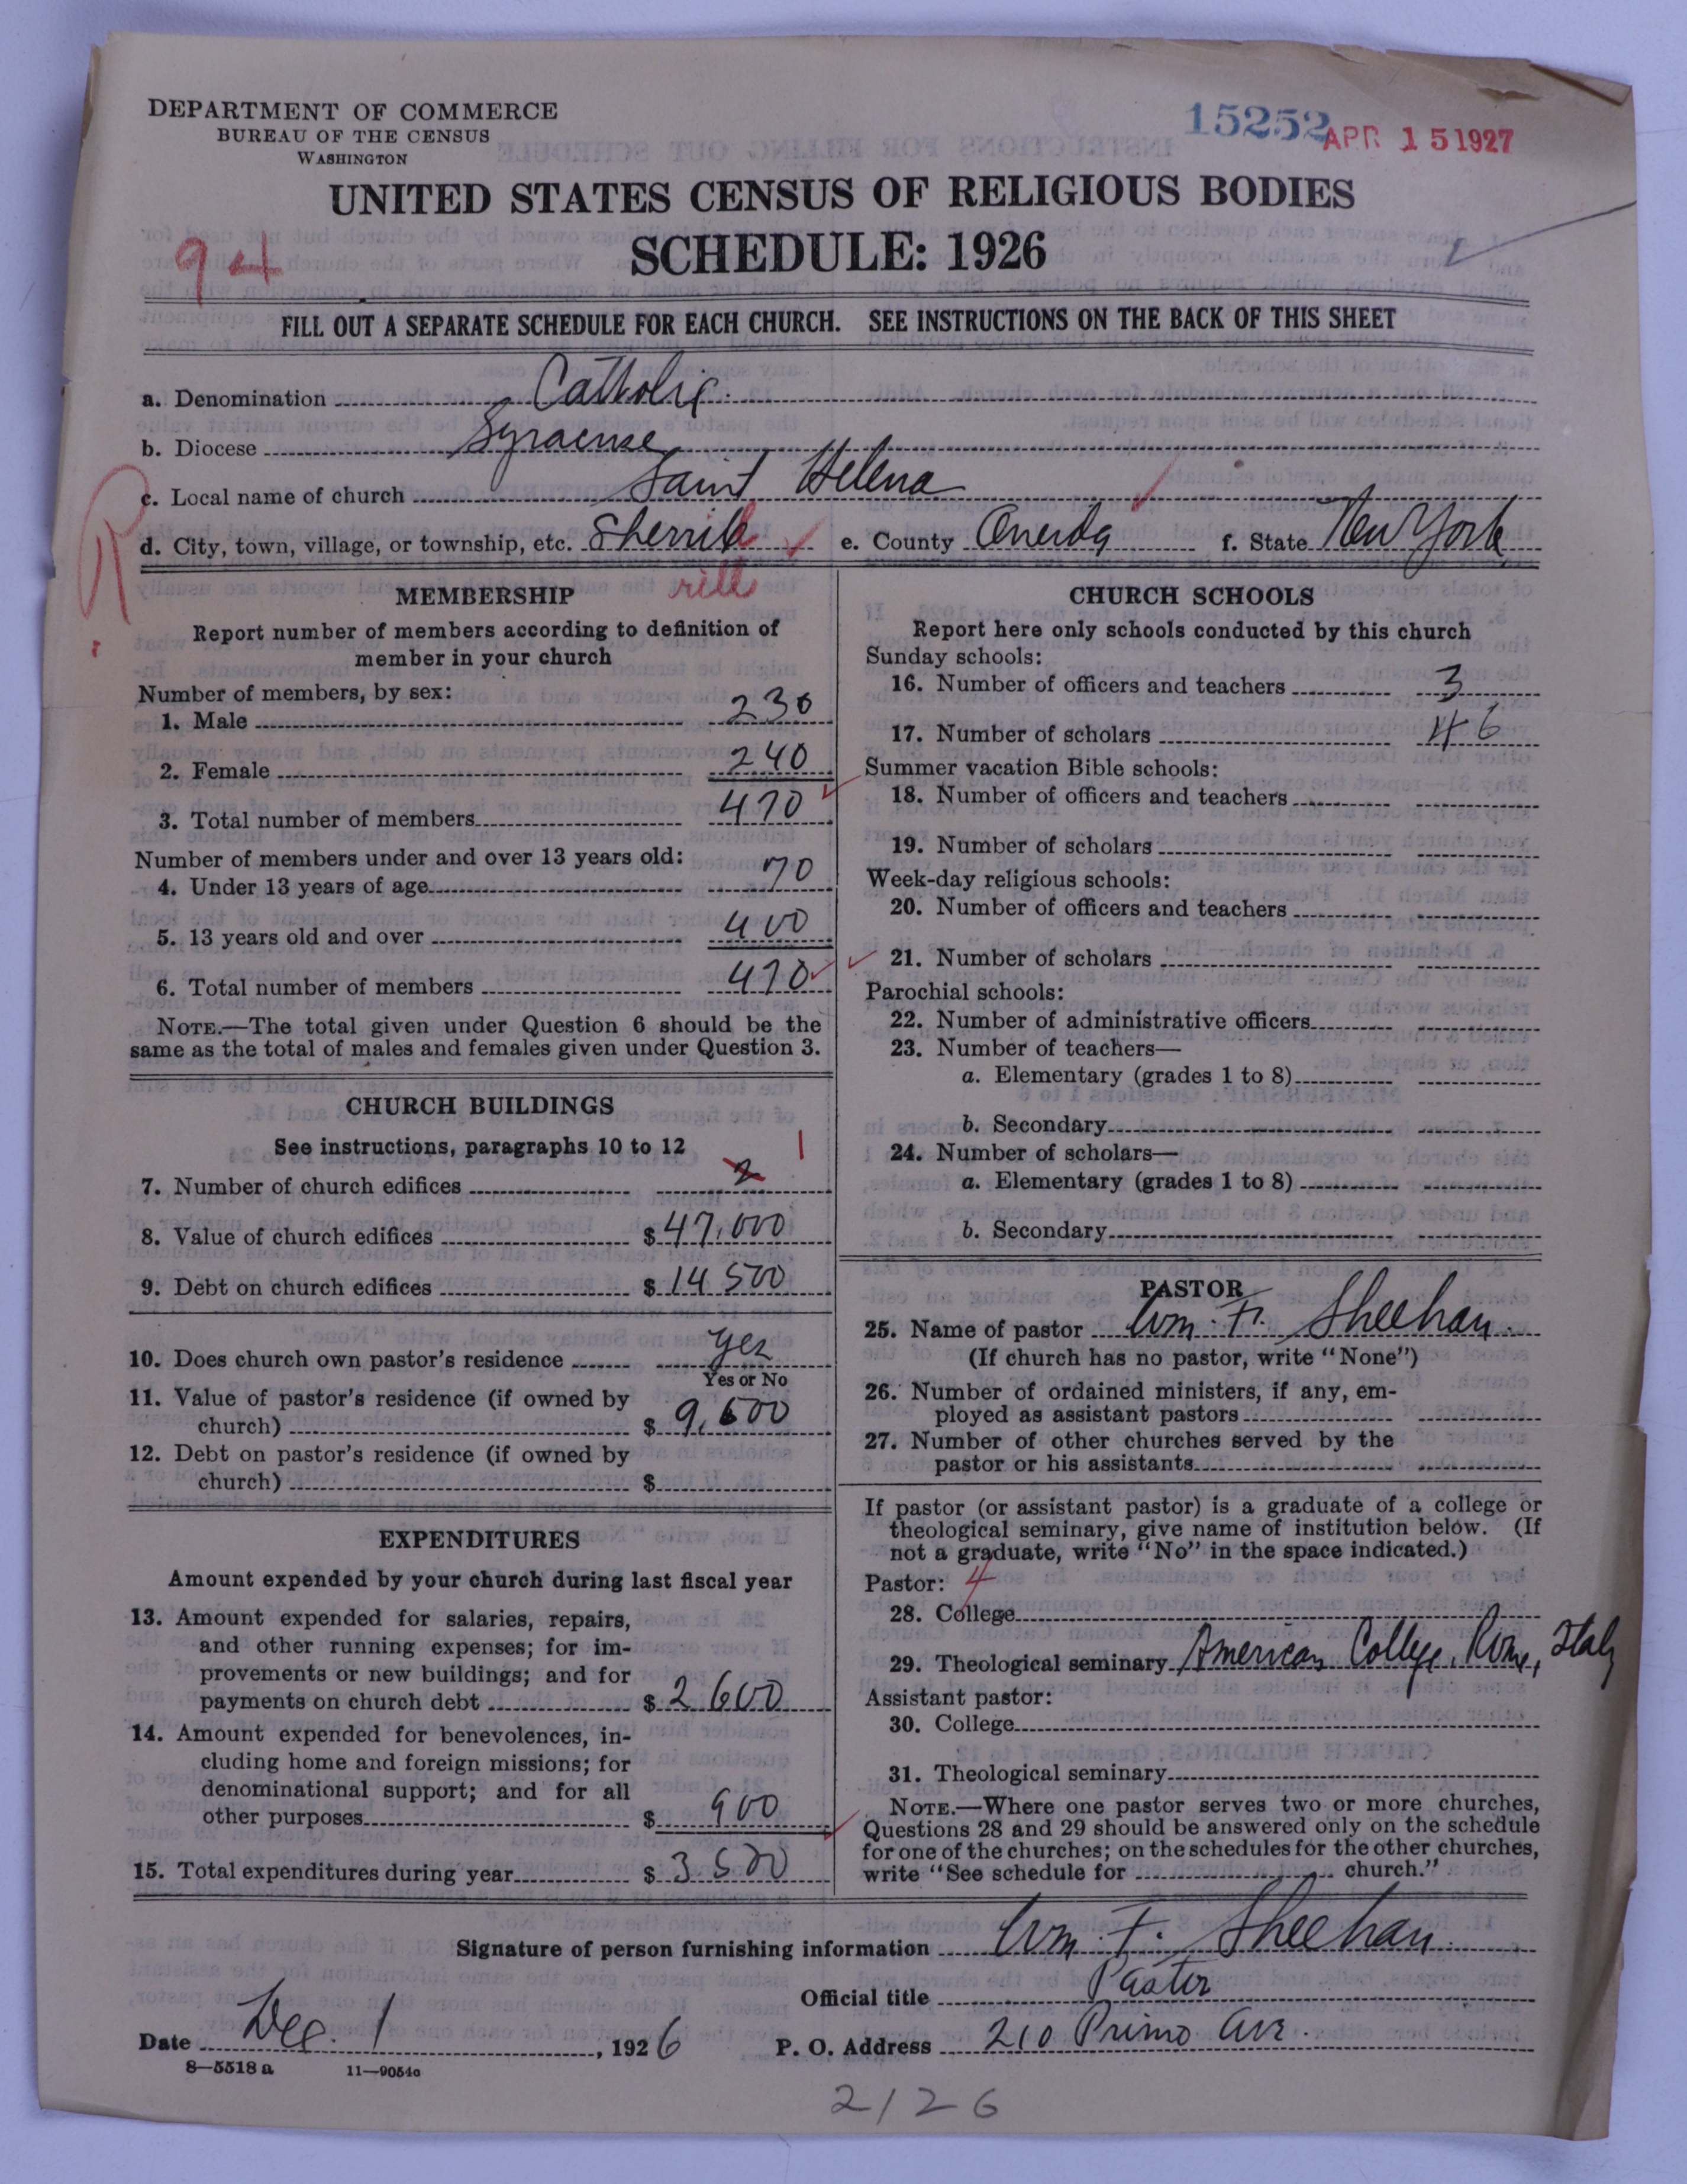 DEPARTMENT OF COMMERCE
BUREAU OF THE CENSUS
WASHINGTON
15252
APR 15 1927
UNITED STATES CENSUS OF RELIGIOUS BODIES
SCHEDULE: 1926
94
FILL OUT A SEPARATE SCHEDULE FOR EACH CHURCH. SEE INSTRUCTIONS ON THE BACK OF THIS SHEET
a. Denomination Catholic
b. Diocese Syracuse
c. Local name of church Saint Helena
R
d. City, town, village, or township, etc. Sherrill e. County Oneida f. State New York
rill
MEMBERSHIP
Report number of members according to definition of
member in your church
Number of members, by sex:
1. Male 230
2. Female 240
3. Total number of members 470
Number of members under and over 13 years old:
4. Under 13 years of age 70
5. 13 years old and over 400
6. Total number of members 470
NOTE.—The total given under Question 6 should be the
same as the total of males and females given under Question 3.
CHURCH BUILDINGS
See instructions, paragraphs 10 to 12
7. Number of church edifices 2 1
8. Value of church edifices $ 47,000
9. Debt on church edifices $ 14 500
10. Does church own pastor's residence yes
Yes or No
11. Value of pastor's residence (if owned by
church) $ 9,600
12. Debt on pastor's residence (if owned by
church) $
EXPENDITURES
Amount expended by your church during last fiscal year
13. Amount expended for salaries, repairs,
and other running expenses; for im-
provements or new buildings; and for
payments on church debt $ 2 600
14. Amount expended for benevolences, in-
cluding home and foreign missions; for
denominational support; and for all
other purposes $ 900
15. Total expenditures during year $ 3 500
CHURCH SCHOOLS
Report here only schools conducted by this church
Sunday schools:
16. Number of officers and teachers 3
17. Number of scholars 46
Summer vacation Bible schools:
18. Number of officers and teachers
19. Number of scholars
Week-day religious schools:
20. Number of officers and teachers
21. Number of scholars
Parochial schools:
22. Number of administrative officers
23. Number of teachers—
a. Elementary (grades 1 to 8)
b. Secondary
24. Number of scholars—
a. Elementary (grades 1 to 8)
b. Secondary
PASTOR
25. Name of pastor Wm. F. Sheehan
(If church has no pastor, write "None")
26. Number of ordained ministers, if any, em-
ployed as assistant pastors
27. Number of other churches served by the
pastor or his assistants
If pastor (or assistant pastor) is a graduate of a college or
theological seminary, give name of institution below. (If
not a graduate, write "No" in the space indicated.)
Pastor: 4
28. College
29. Theological seminary American College, Rome, Italy
Assistant pastor:
30. College
31. Theological seminary
NOTE.—Where one pastor serves two or more churches,
Questions 28 and 29 should be answered only on the schedule
for one of the churches; on the schedules for the other churches,
write "See schedule for church."
Signature of person furnishing information Wm. F. Sheehan
Official title Pastor
Date Dec. 1, 1926 P. O. Address 210 Primo Ave.
8—5518 a 11—9054a
2126